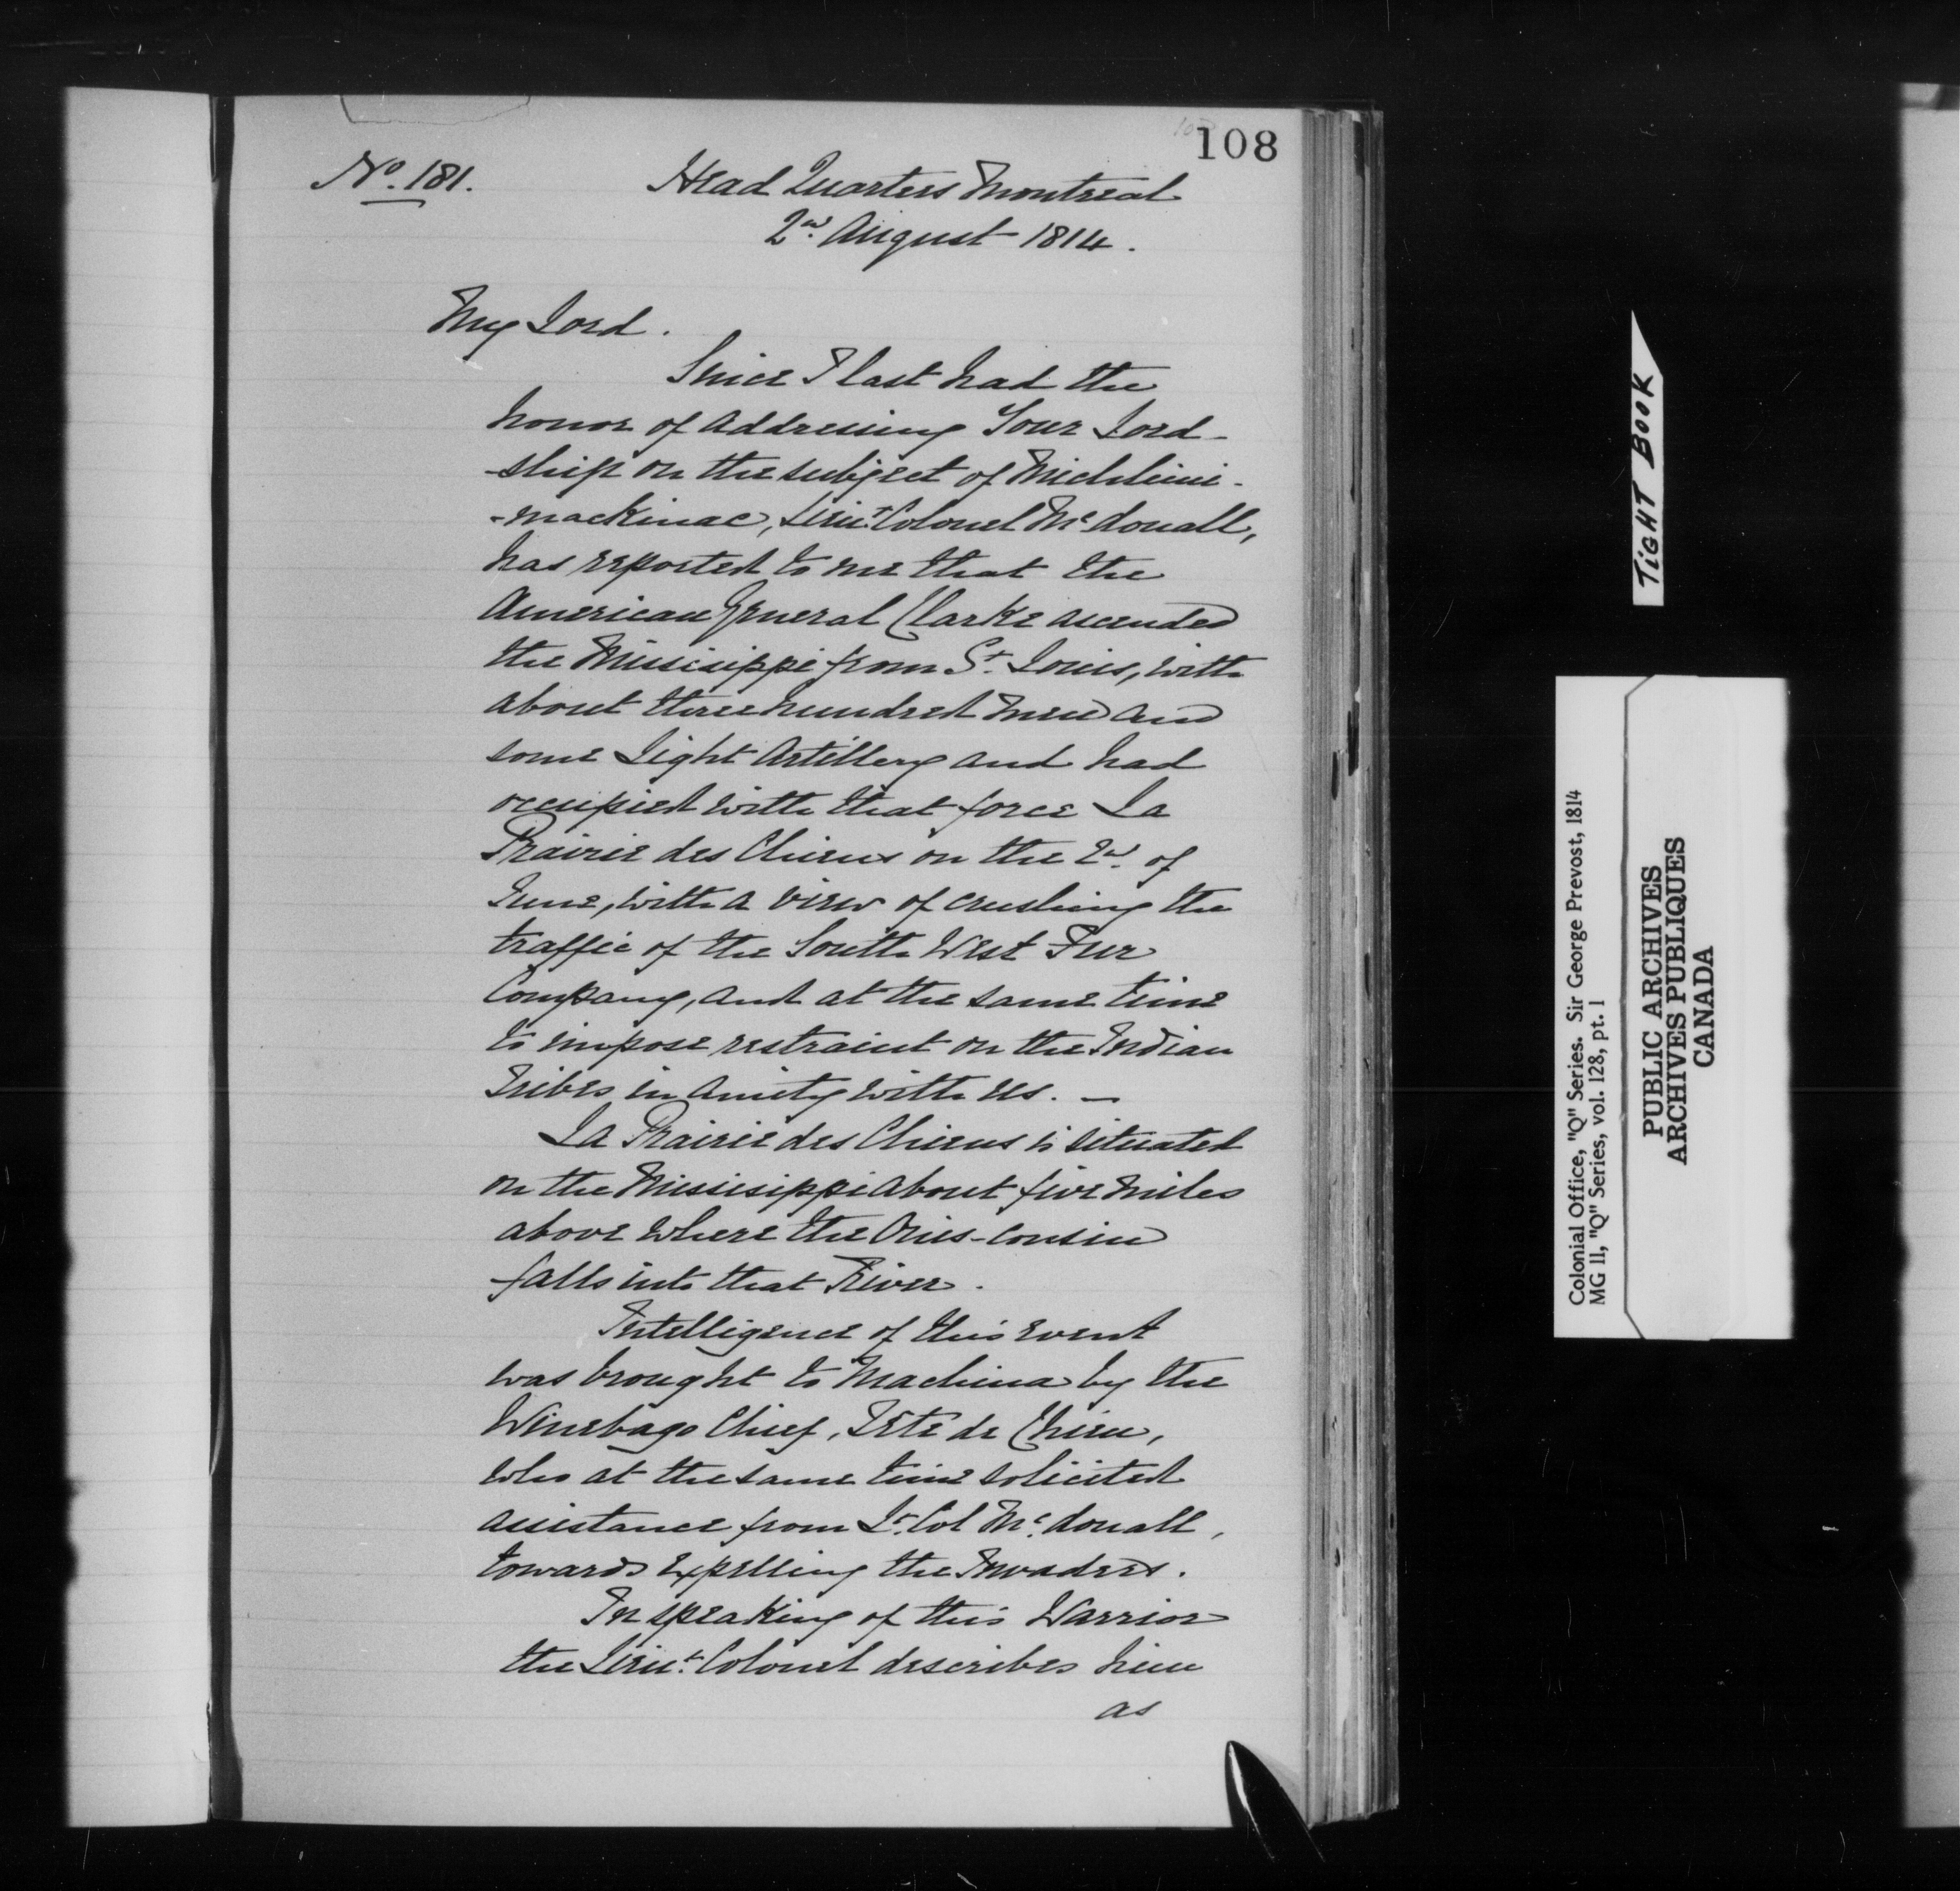 108
No. 181.
Head Quarters Montreal
2nd August 1814.
My Lord.
Since I last had the
honor of addressing Your Lord-
-ship on the subject of Michilimi-
-mackinac, Lieut. Colonel Mc.douall,
has reported to me that the
American General Clarke ascended
the Missisippi from St. Louis, with
about three hundred men and
some Light Artillery and had
occupied with that force La
Prairie des Chiens on the 2nd. of
June, with a view of crushing the
traffic of the South West Fur
Company, and at the same time
to impose restraint on the Indian
Tribes in Amity with us. —
La Prairie des Chiens is situated
on the Missisippi about five miles
above where the Ouis-consin
falls into that River.
Intelligence of this event
was brought to Machina by the
Winebago Chief, Tête de Chien,
who at the same time solicited
assistance from Lt. Col Mc.douall,
towards expelling the Invaders.
In speaking of this Warrior
the Lieut. Colonel describes him
as
TIGHT BOOK
Colonial Office, "Q" Series. Sir George Prevost, 1814
MG 11, "Q" Series, vol. 128, pt. 1
PUBLIC ARCHIVES
ARCHIVES PUBLIQUES
CANADA